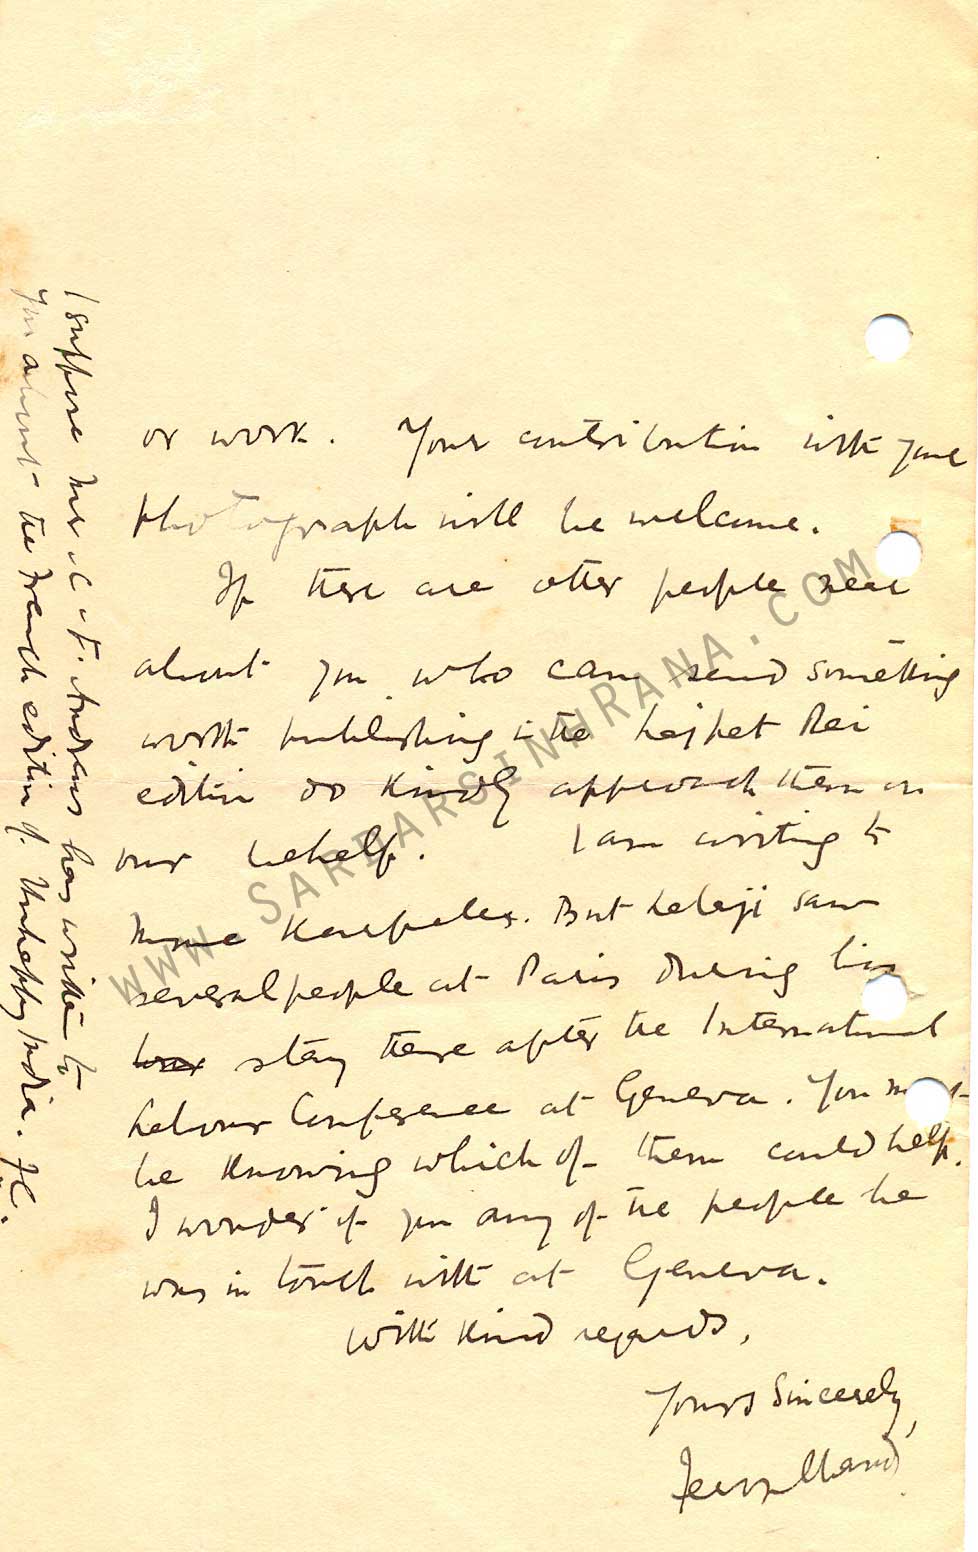 or work. Your contribution with your
photograph will be welcome.
If there are other people near
about you who can send something
worth publishing in the Lajpat Rai
edition do kindly approach them on
our behalf. I am writing to
Mme Karpeles. But Lalaji saw
several people at Paris during his
stay there after the International
Labour Conference at Geneva. You must
be knowing which of them could help.
I wonder if you any of the people he
was in touch with at Geneva.
With kind regards,
Yours Sincerely,
I suppose Mr. C. F. Andrews has written to
you about the French edition of Unhappy India. J.C.
WWW.SARDARSINHRANA.COM